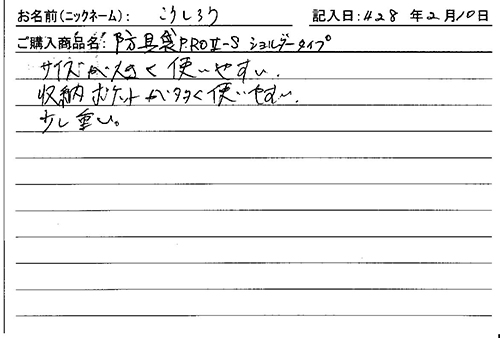 お名前(ニックネーム): こうしろう 記入日: H28 年 2 月 10 日
ご購入商品名: 防具袋 PROⅡ-S ショルダータイプ
サイズが大きく使いやすい.
収納ポケットが多く使いやすい.
少し重い。